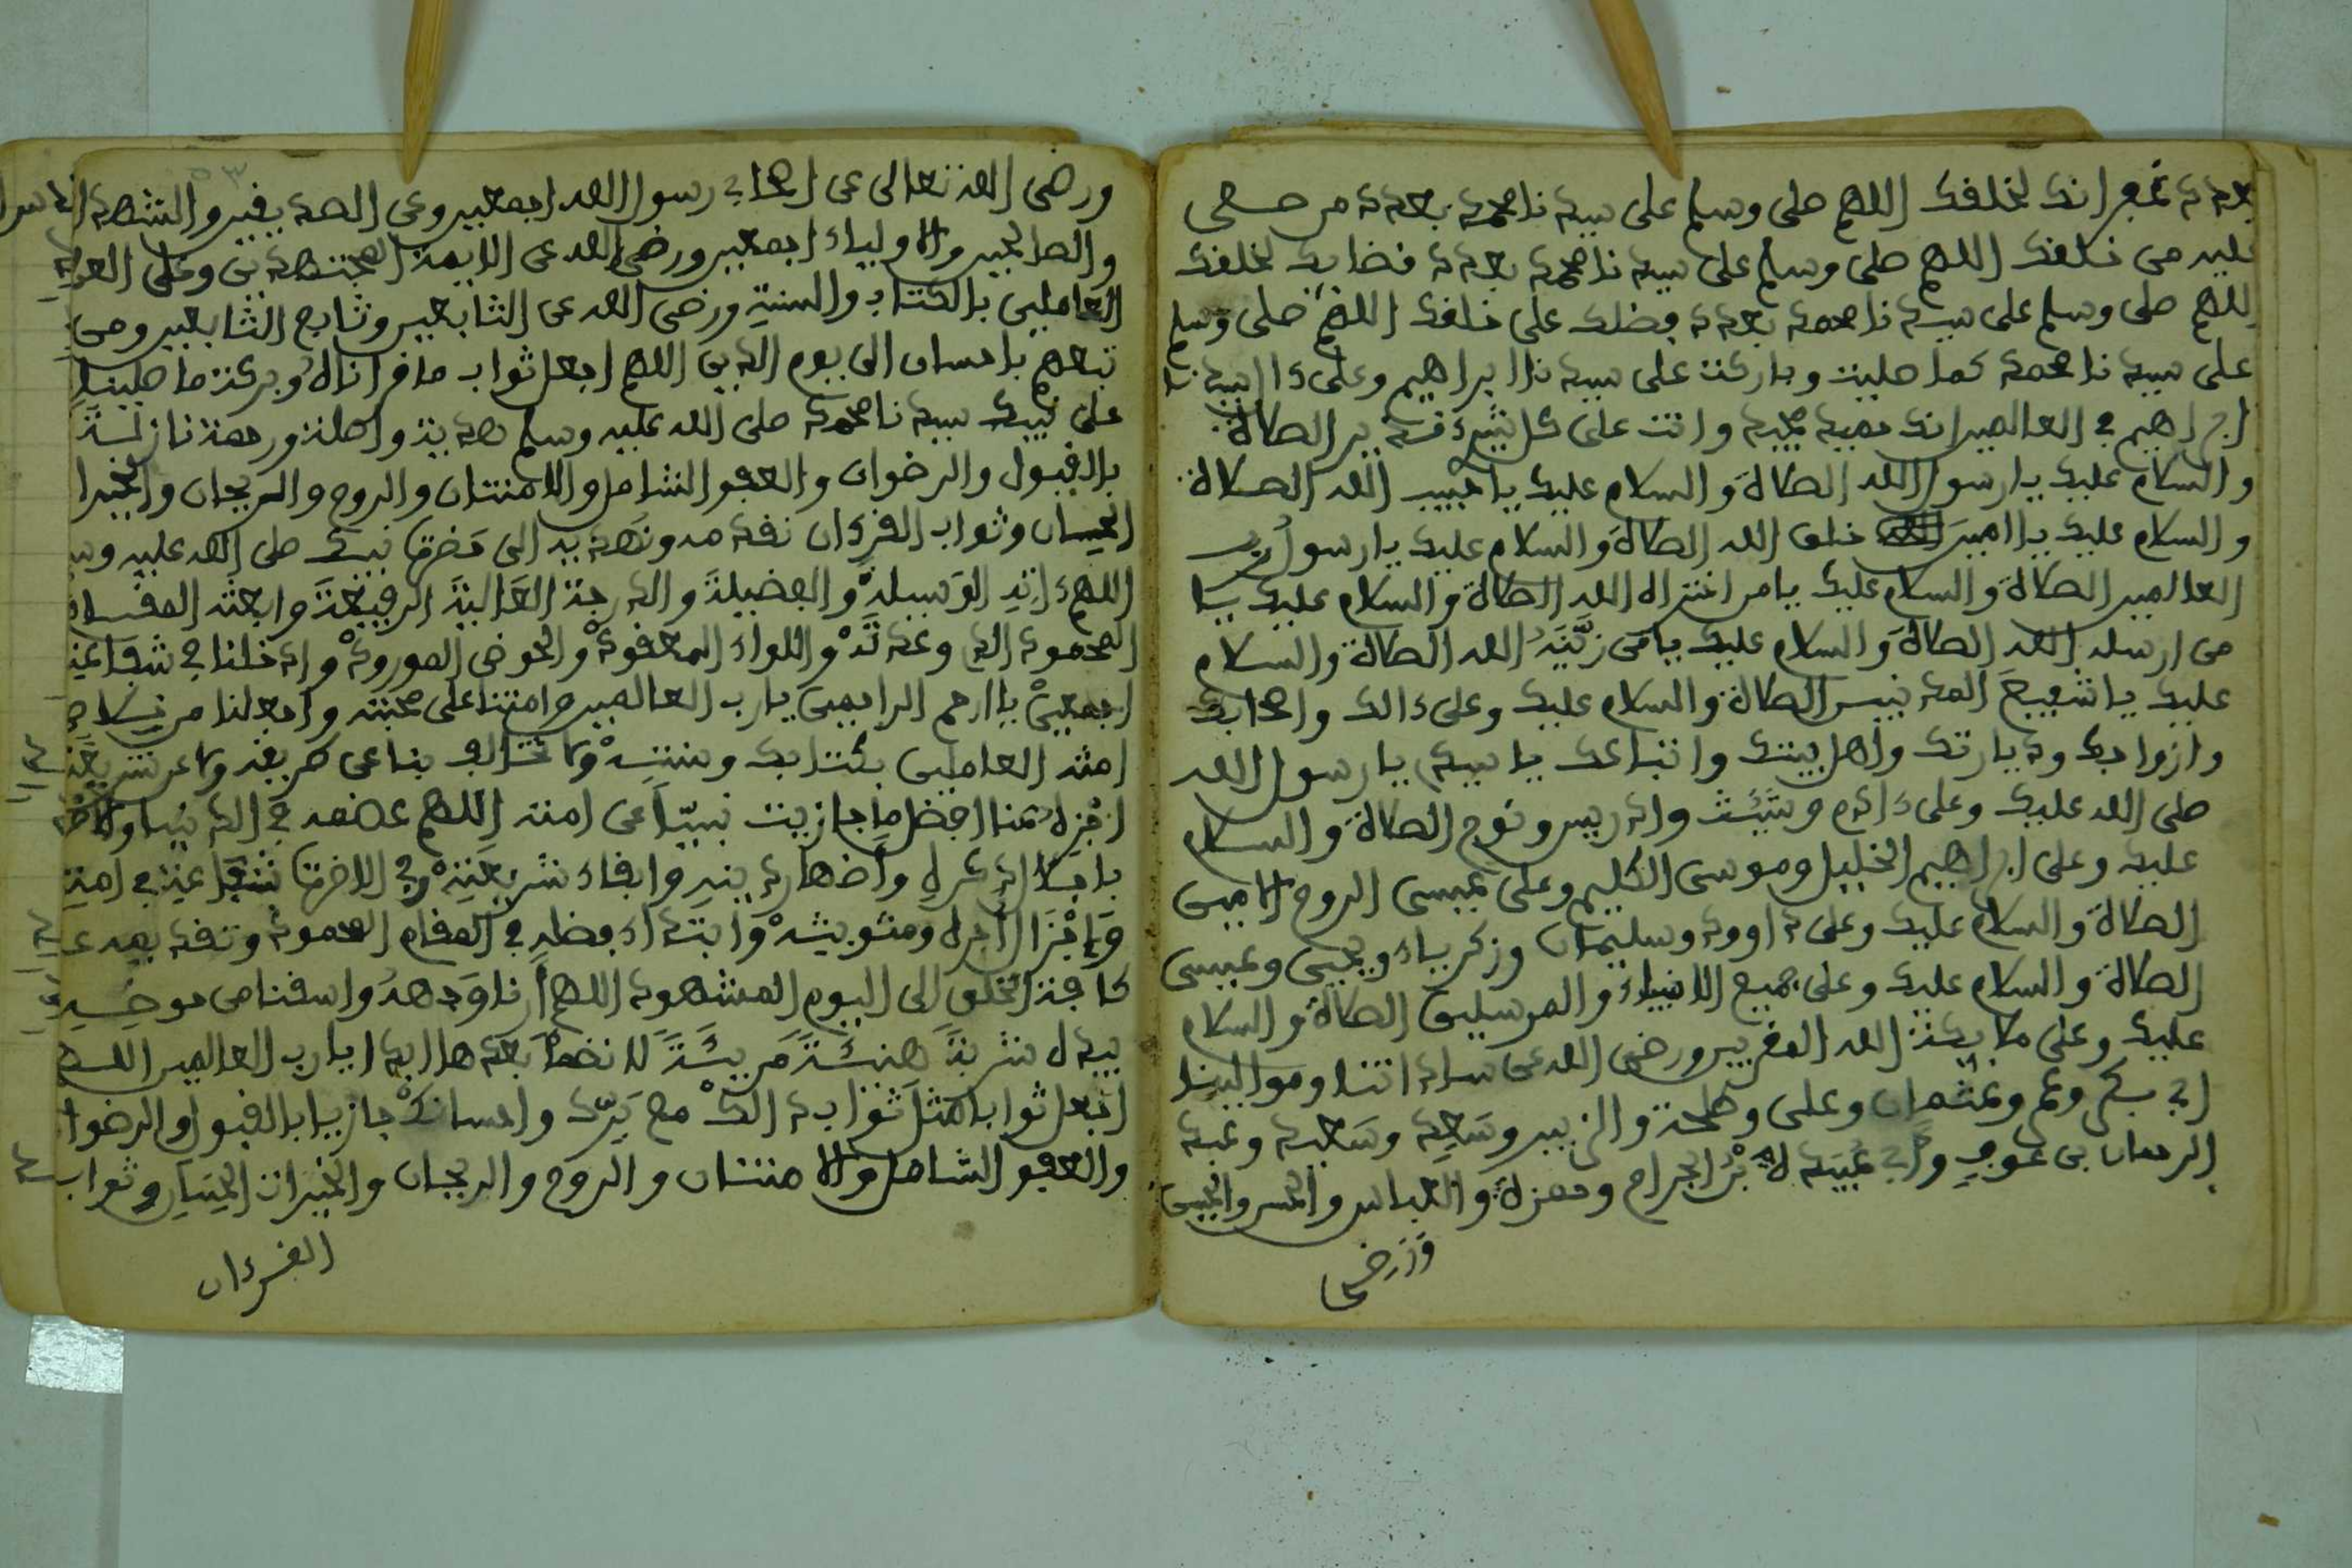 بعدد غفرانك لخلقك اللهم صلى وسلم على سيدنا محمد بعدد من صلى
عليه من خلقك اللهم صلى وسلم على سيدنا محمد بعدد قضايك لخلقك
اللهم صلى وسلم على سيدنا محمد بعدد فضلك على خلقك اللهم صلى وسلم
على سيدنا محمد كما صليت وباركت على سيدنا ابراهيم وعلى ءال سيدنا
ابراهيم في العالمين انك حميد مجيد وانت على كل شيء قدير الصلاة
والسلام عليك يا رسول الله الصلاة والسلام عليك يا حبيب الله الصلاة
والسلام عليك يا امين خلق الله الصلاة والسلام عليك يا رسول رب
العالمين الصلاة والسلام عليك يا من اختراه الله الصلاة والسلام عليك يا
من ارسله الله الصلاة والسلام عليك يا من زَيَّنَه الله الصلاة والسلام
عليك يا شفيع المذنبين الصلاة والسلام عليك وعلى ءالك واصحابك
وازواجك وذيارتك واهل بيتك واتباعك يا سيدي يا رسول الله
صلى الله عليك وعلى ءادم وشيث وادريس ونوح الصلاة والسلام
عليك وعلى ابراهيم الخليل وموسى الكليم وعلى عيسى الروح الامين
الصلاة والسلام عليك وعلى داوود وسليمان وزكرياء ويحيى وعيسى
الصلاة والسلام عليك وعلى جميع الانبياء والمرسلين الصلاة والسلام
عليك وعلى ملايكة الله المقربين ورضى الله عن ساداتنا وموالينا
ابي بكر وعمر وعثمان وعلى وطلحة والزبير وسَعِد وسَعيد وعبد
الرحمان بن عوف وابي عُبَيدة بْن الجراح وحمزة والعباس والحسن والحسين
ورضى
ورضى الله تعالى عن اصحاب رسول الله اجمعين وعن الصديقين والشهداء
والصالحين والاولياء اجمعين ورضى الله عن الايمة المجتهدين وعلى العلماء
العاملين بالكتاب والسنة ورضى الله عن التابعين وتابع التابعين ومن
تبعهم باحسان الى يوم الدين اللهم اجعل ثواب ما قراناه وبركة ما صلينا
على نبيك سيدنا محمد صلى الله عليه وسلم هدية واصلة ورحمة نازلة
بالقبول والرضوان والعفو الشامل والامتنان والروح والريحان والخيرا
الحِسان وثواب القرءان نقدمه ونهديه الى حَضرة نبيك صلى الله عليه وسلم
اللهم ءاتِهِ الوَسيلة والفضيلة والدرجة العالية الرفيعة وابعثه المقام
المحمود الذي وعدتَهْ واللواء المعقودْ والحوض المورودْ وادخلنا في شفاعته
اجمعينْ يا ارحم الراحمين يا رب العالمين وامتنا على محبته واجعلنا من
امته العاملين بكتابك وسنتِهْ ولا تخالف بنا عن طريقه ولا عن شريعته
اجْزِه عَنا افضل ما جازيت نبيّاً عن امته اللهم عضمه في الدنيا والاخرة
باعلاء ذكرهِ واضهار دينهِ وابقاء شريعتِهْ وفي الاخرة شفاعته في امتِهِ
وَاِجْزَال اجره ومثوبتِهْ وابتداء فضلهِ في المقام المحمود وتقديمه على
كافة الخلق الى اليوم المشهود اللهم أرنا وَجهَهُ واسقنا من حوضه
بيده شربةً هنيئةً مَريئةً لا نضمأ بعدها ابدا يا رب العالمين اللهم
اجعل ثوابا مثلَ ثواب ذالكْ مع بَرّك واحسانكْ جازيا بالقبول والرضوا
والعفو الشامل والامتنان والروح والريحان والخيرات الحِسان وثواب
القرءان